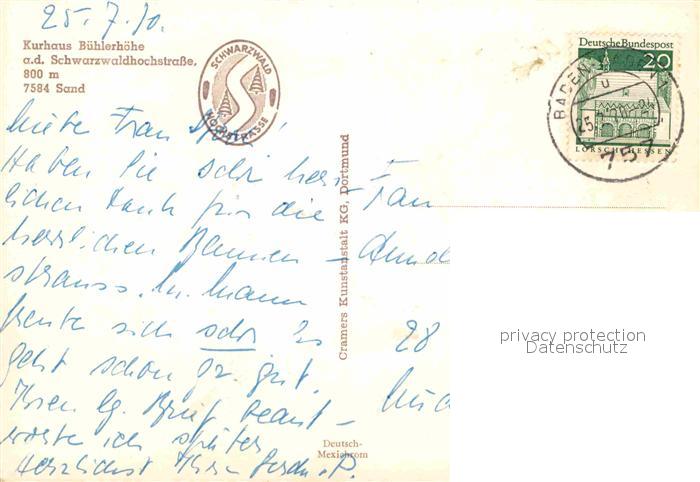 25.7.70.
Kurhaus Bühlerhöhe
a.d. Schwarzwaldhochstraße,
800 m
7584 Sand
SCHWARZWALD
HOCHSTRASSE
Deutsche Bundespost
20
LORSCH/HESSEN
BADEN-BADEN 1
757
Liebe Frau
Haben Sie sehr herz-
lichen Dank für die
herrlichen Blumen-
strauss. M. Mann
freute sich sehr. Es
geht schon ganz gut.
Ihren lg. Brief beant-
worte ich später
Herzlichst Ihre
Cramers Kunstanstalt KG, Dortmund
Deutsch-
Mexichrom
Frau
28
privacy protection
Datenschutz